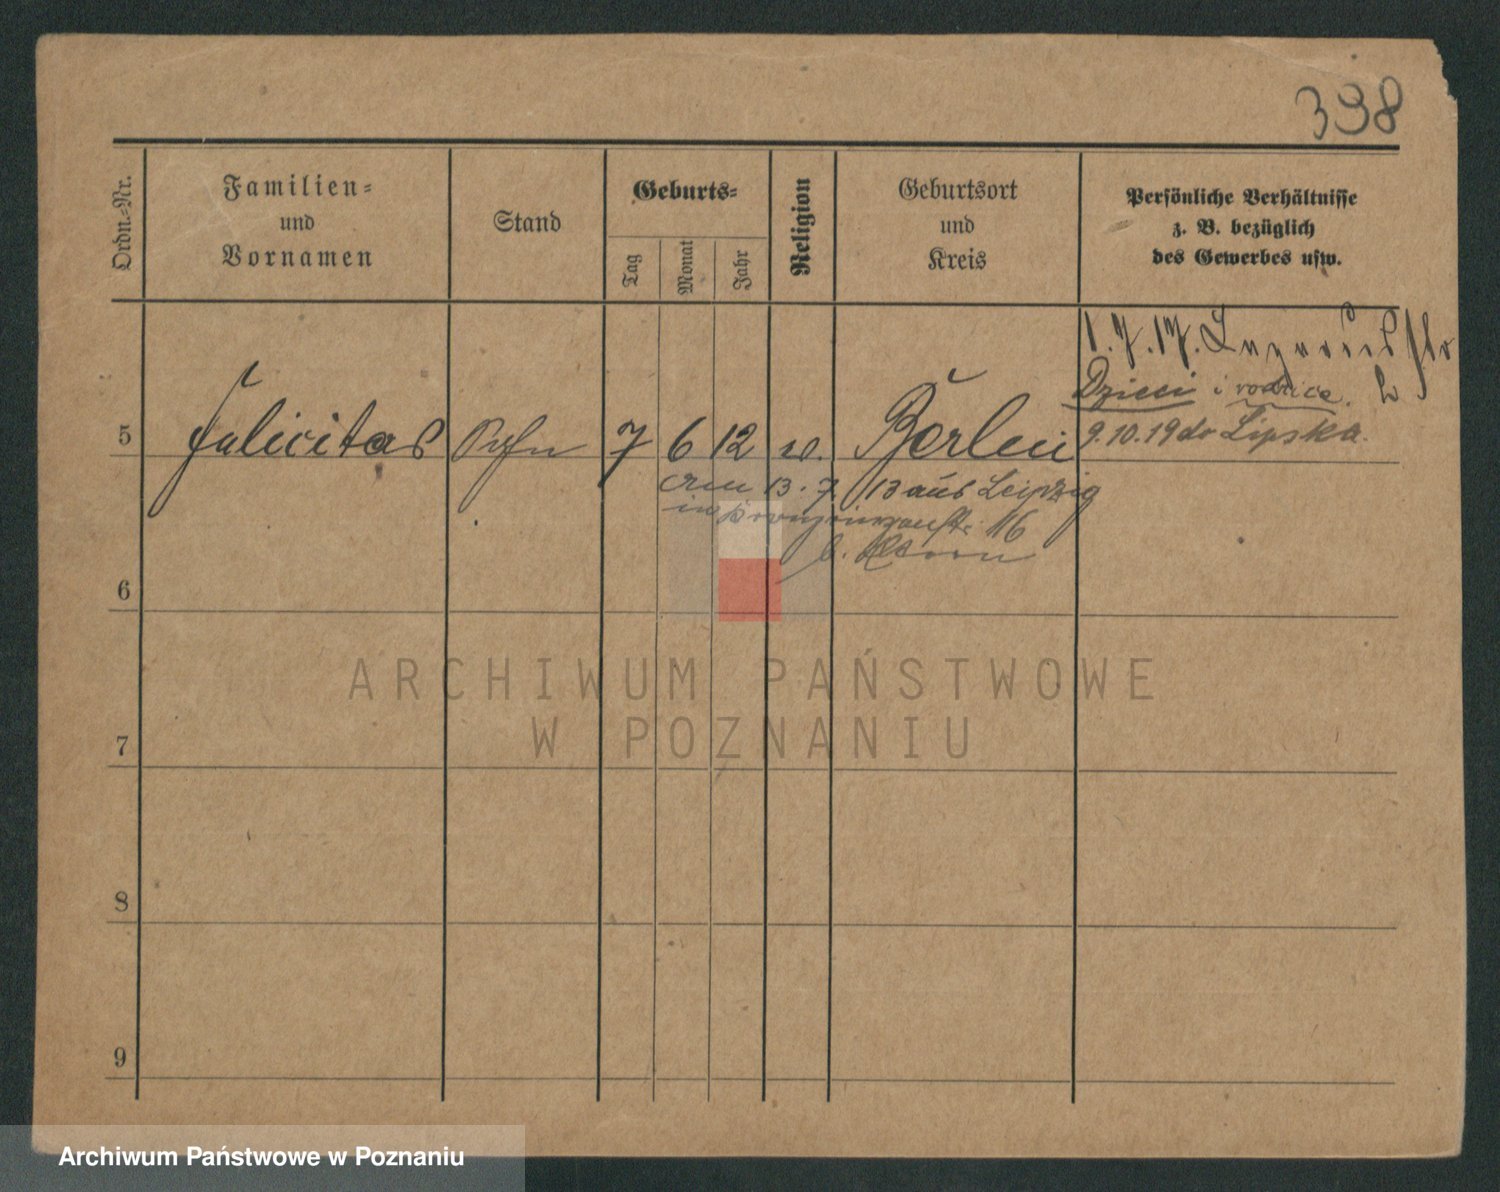 398
Ordn.-Nr.
Familien-
und
Vornamen
Stand
Geburts-
Tag
Monat
Jahr
Religion
Geburtsort
und
Kreis
Persönliche Verhältnisse
z. B. bezüglich
des Gewerbes usw.
1.7.17.
Dzieci i rodzice.
5 Felicitas 7 6 12 Berlin 9.10.19 do Lipska.
13.7.13 aus Leipzig
16
6
7
8
9
ARCHIWUM PAŃSTWOWE
W POZNANIU
Archiwum Państwowe w Poznaniu